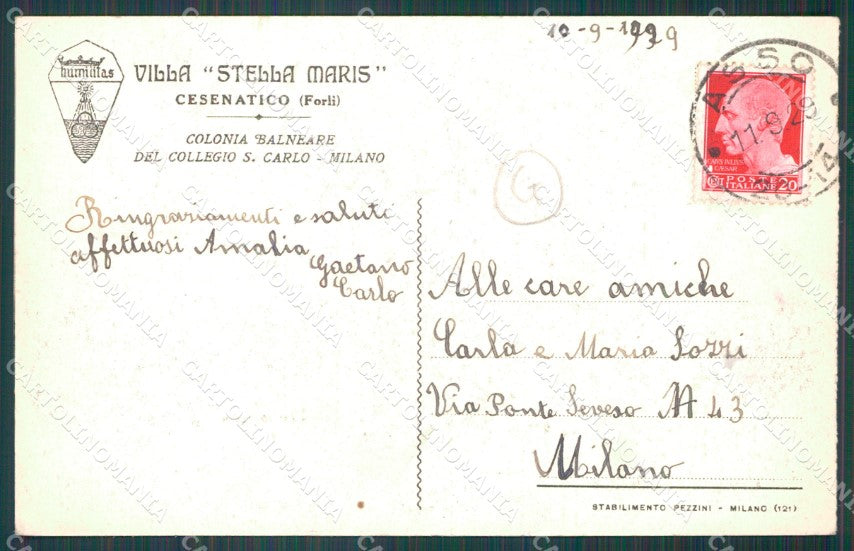 10-9-1929
humilitas
VILLA "STELLA MARIS"
CESENATICO (Forlì)
COLONIA BALNEARE
DEL COLLEGIO S. CARLO - MILANO
ASSO
11.9.29
CAIVS IVLIVS
CAESAR
POSTE
ITALIANE 20
Ringraziamenti e saluti
affettuosi Amalia
Gaetano
Carlo
Alle care amiche
Carla e Maria Sozzi
Via Ponte Seveso N 43
Milano
STABILIMENTO PEZZINI - MILANO (121)
CARTOLINOMANIA